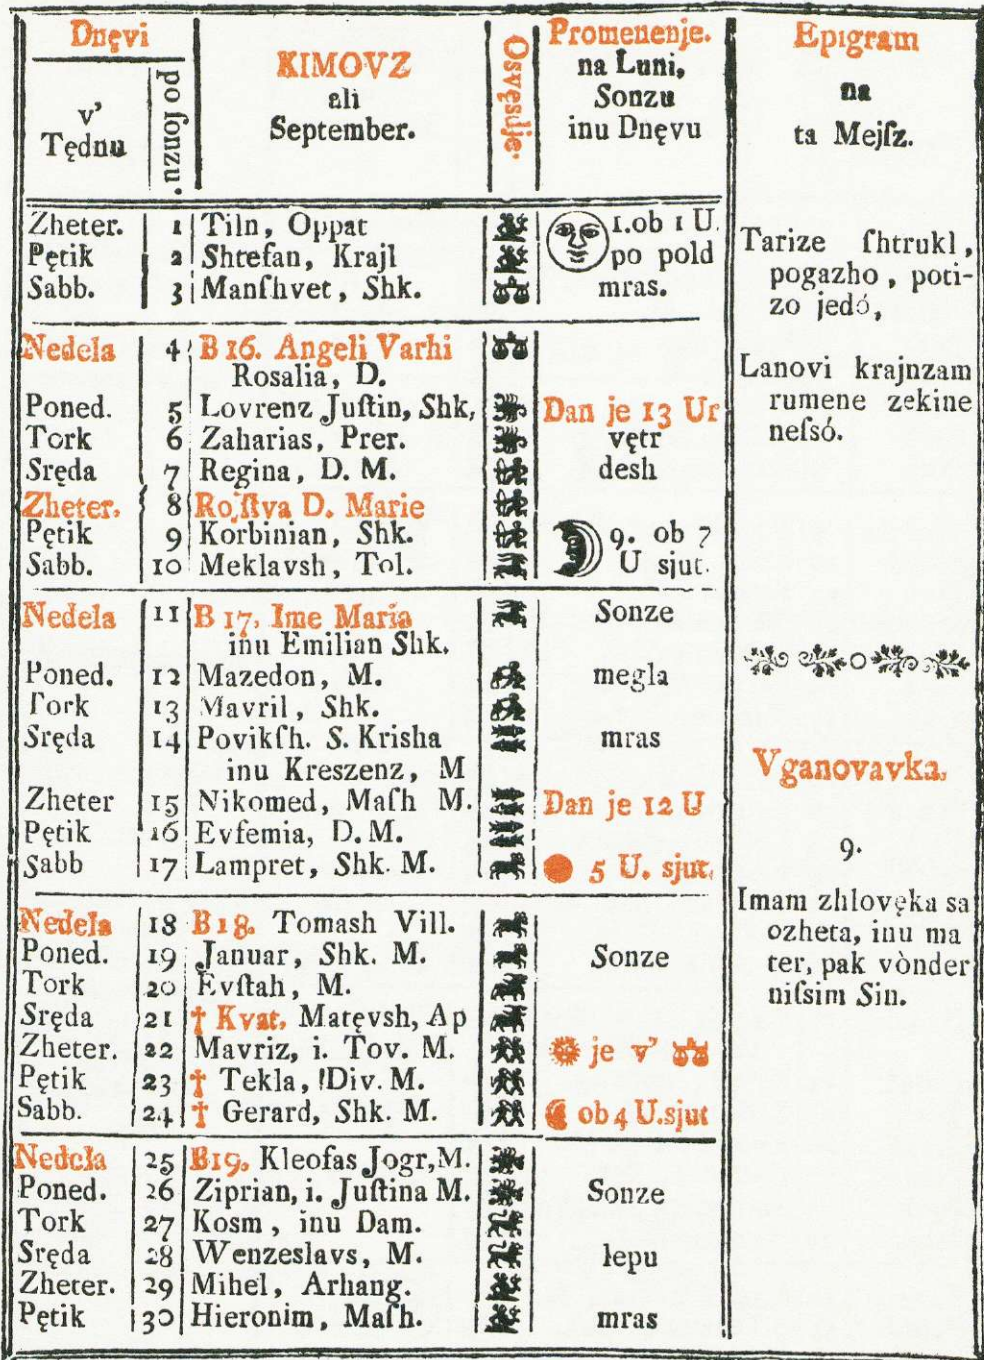 Dnęvi
v'
Tędnu
po ſonzu.
KIMOVZ
ali
September.
Osvęsdje.
Promenenje.
na Luni,
Sonzu
inu Dnęvu
Epigram
na
ta Mejſz.
Zheter. 1 Tiln, Oppat 1.ob 1 U.
Pętik 2 Shtefan, Krajl po pold
Sabb. 3 Manſhvet, Shk. mras.
Nedela 4 B 16. Angeli Varhi
Rosalia, D.
Poned. 5 Lovrenz Juſtin, Shk, Dan je 13 Ur
Tork 6 Zaharias, Prer. vętr
Sręda 7 Regina, D. M. desh
Zheter. 8 Rojſtva D. Marie
Pętik 9 Korbinian, Shk. 9. ob 7
Sabb. 10 Meklavsh, Tol. U sjut.
Nedela 11 B 17. Ime Maria Sonze
inu Emilian Shk.
Poned. 12 Mazedon, M. megla
Tork 13 Mavril, Shk.
Sręda 14 Povikſh. S. Krisha mras
inu Kreszenz, M
Zheter 15 Nikomed, Maſh M. Dan je 12 U
Pętik 16 Evfemia, D. M.
Sabb 17 Lampret, Shk. M. 5 U. sjut.
Nedela 18 B 18. Tomash Vill.
Poned. 19 Januar, Shk. M. Sonze
Tork 20 Evſtah, M.
Sręda 21 † Kvat. Matęvsh, Ap
Zheter. 22 Mavriz, i. Tov. M. je v'
Pętik 23 † Tekla, Div. M.
Sabb. 24 † Gerard, Shk. M. ob 4 U.sjut
Nedela 25 B19. Kleofas Jogr, M.
Poned. 26 Ziprian, i. Juſtina M. Sonze
Tork 27 Kosm, inu Dam.
Sręda 28 Wenzeslavs, M. lepu
Zheter. 29 Mihel, Arhang.
Pętik 30 Hieronim, Maſh. mras
Tarize ſhtrukl,
pogazho, poti-
zo jedó,
Lanovi krajnzam
rumene zekine
neſsó.
Vganovavka.
9.
Imam zhlovęka sa
ozheta, inu ma
ter, pak vònder
niſsim Sin.